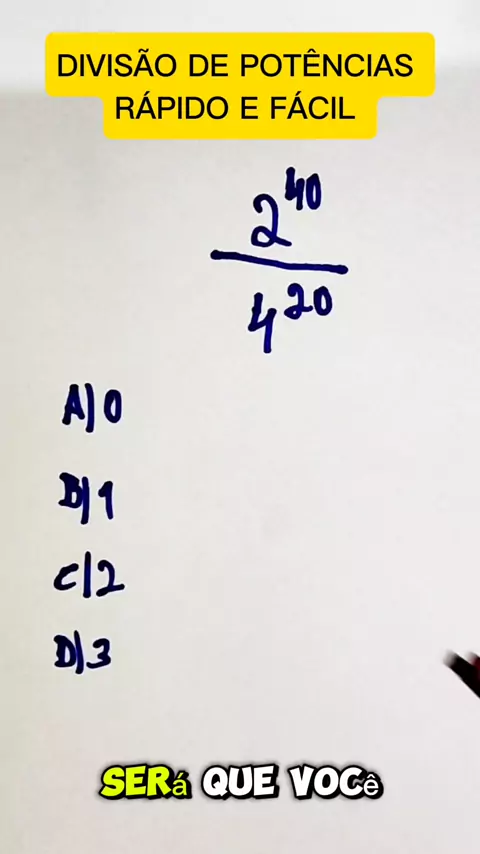 DIVISÃO DE POTÊNCIAS
RÁPIDO E FÁCIL
2^40
4^20
A) 0
B) 1
C) 2
D) 3
SERá QUE VOCÊ